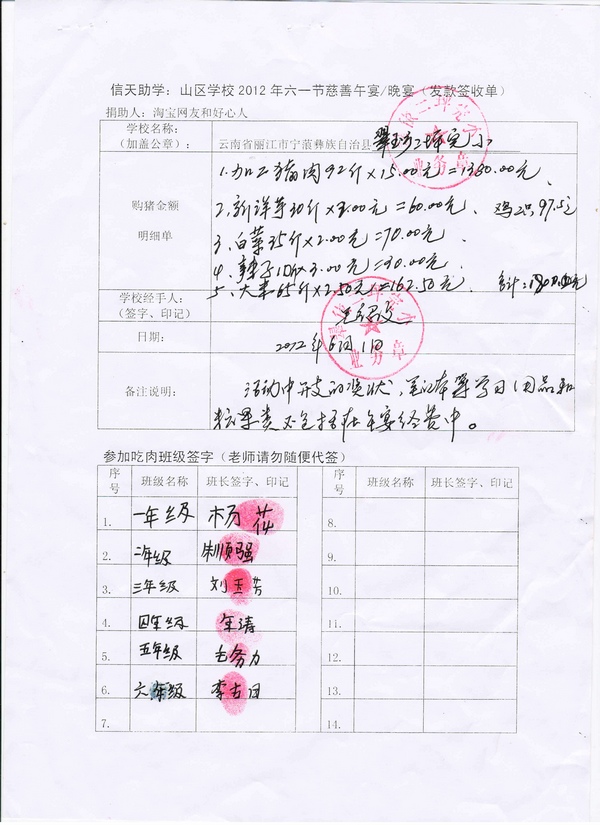 信天助学：山区学校2012年六一节慈善午宴/晚宴（发款签收单）
捐助人：淘宝网友和好心人
学校名称：
（加盖公章）：
云南省丽江市宁蒗彝族自治县翠玉乡二坪完小
购猪金额
明细单
1.加工猪肉92斤×15.00元=1380.00元、
2、新洋芋30斤×2.00元=60.00元、 鸡 97.5元
3、白菜35斤×2.00元=70.00元、
4、辣子10斤×3.00元=30.00元、
5、大米65斤×2.50元=162.50元、 合计：
学校经手人：
（签字、印记）
日期：
2012年6月1日
业务章
备注说明：
活动中开支的奖状、笔记本等学习用品和
糖果类不包括在午宴经费中。
参加吃肉班级签字（老师请勿随便代签）
序号 班级名称 班长签字、印记 序号 班级名称 班长签字、印记
1. 一年级 杨花 8.
2. 二年级 朱顺强 9.
3. 三年级 刘玉芳 10.
4. 四年级 年清 11.
5. 五年级 毛务力 12.
6. 六年级 李古田 13.
7. 14.